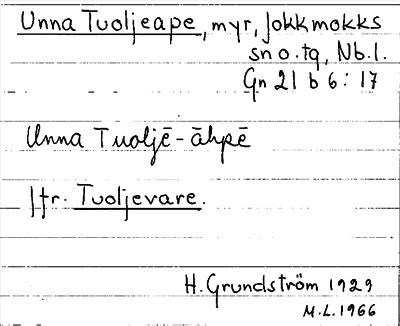 Unna Tuoljeape, myr, Jokkmokks
sn o. tg, Nb.l.
Gn 21 b 6 : 17
Unna Tuoljē-āhpē
Jfr. Tuoljevare.
H. Grundström 1929
M.L. 1966